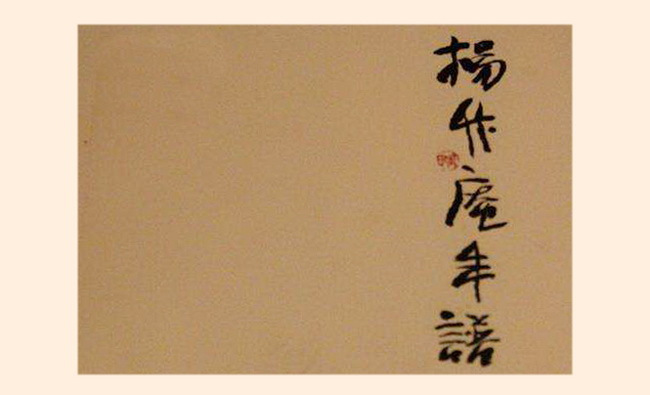 楊竹庵年譜